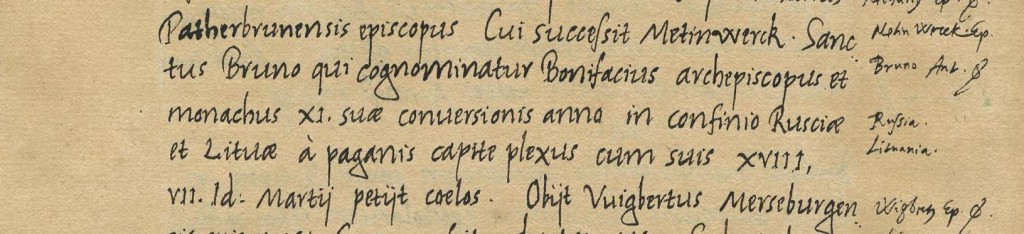 Patherbrunensis episcopus Cui successit Metinwerck. Sanc
Metin Wreck Ep.
tus Bruno qui cognominatur Bonifacius archepiscopus et
Bruno Ant.
monachus XI. suæ conversionis anno in confinio Rusciæ
Russia.
et Lituæ à paganis capite plexus cum suis XVIII,
Lituania.
VII. Id: Martij petijt coelos. Obijt Vuigbertus Merseburgen
Wigbertus Ep.